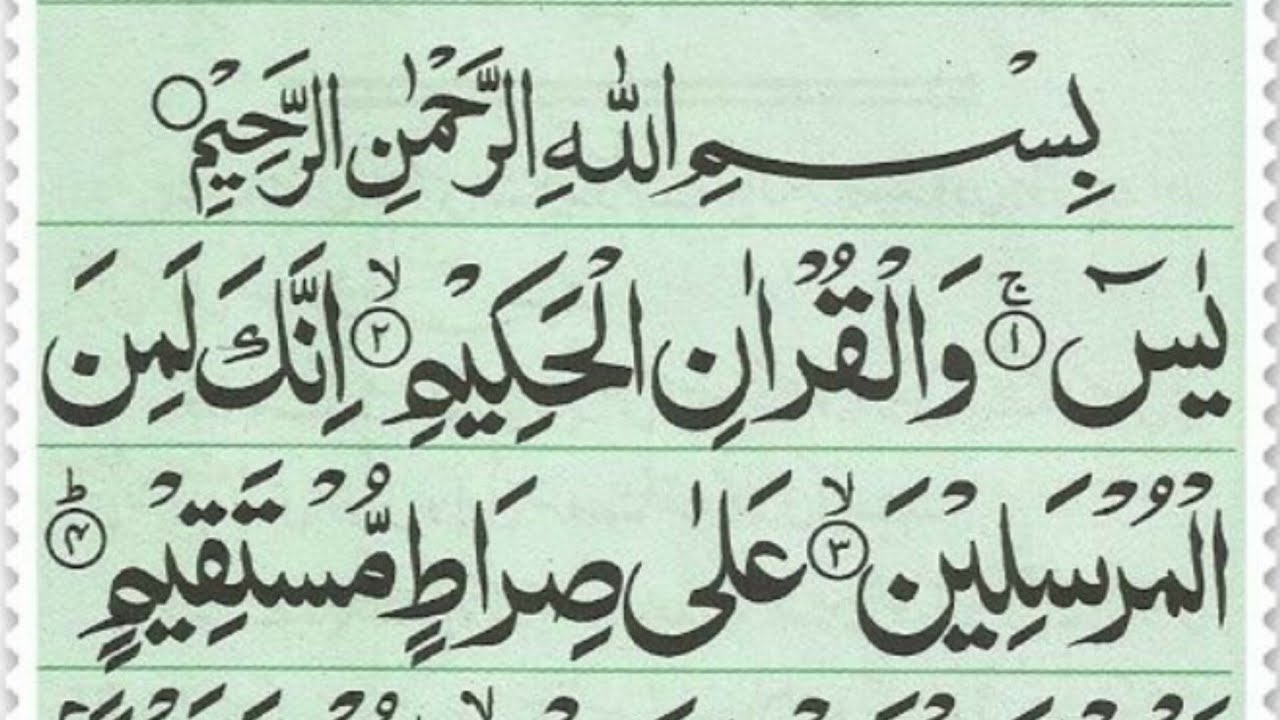 بِسْمِ اللّٰهِ الرَّحْمٰنِ الرَّحِيْمِ ○
يٰسٓ ۚ ﴿۱﴾ وَالْقُرْاٰنِ الْحَكِيْمِ ۙ ﴿۲﴾ اِنَّكَ لَمِنَ
الْمُرْسَلِيْنَ ۙ ﴿۳﴾ عَلٰى صِرَاطٍ مُّسْتَقِيْمٍ ؕ ﴿۴﴾